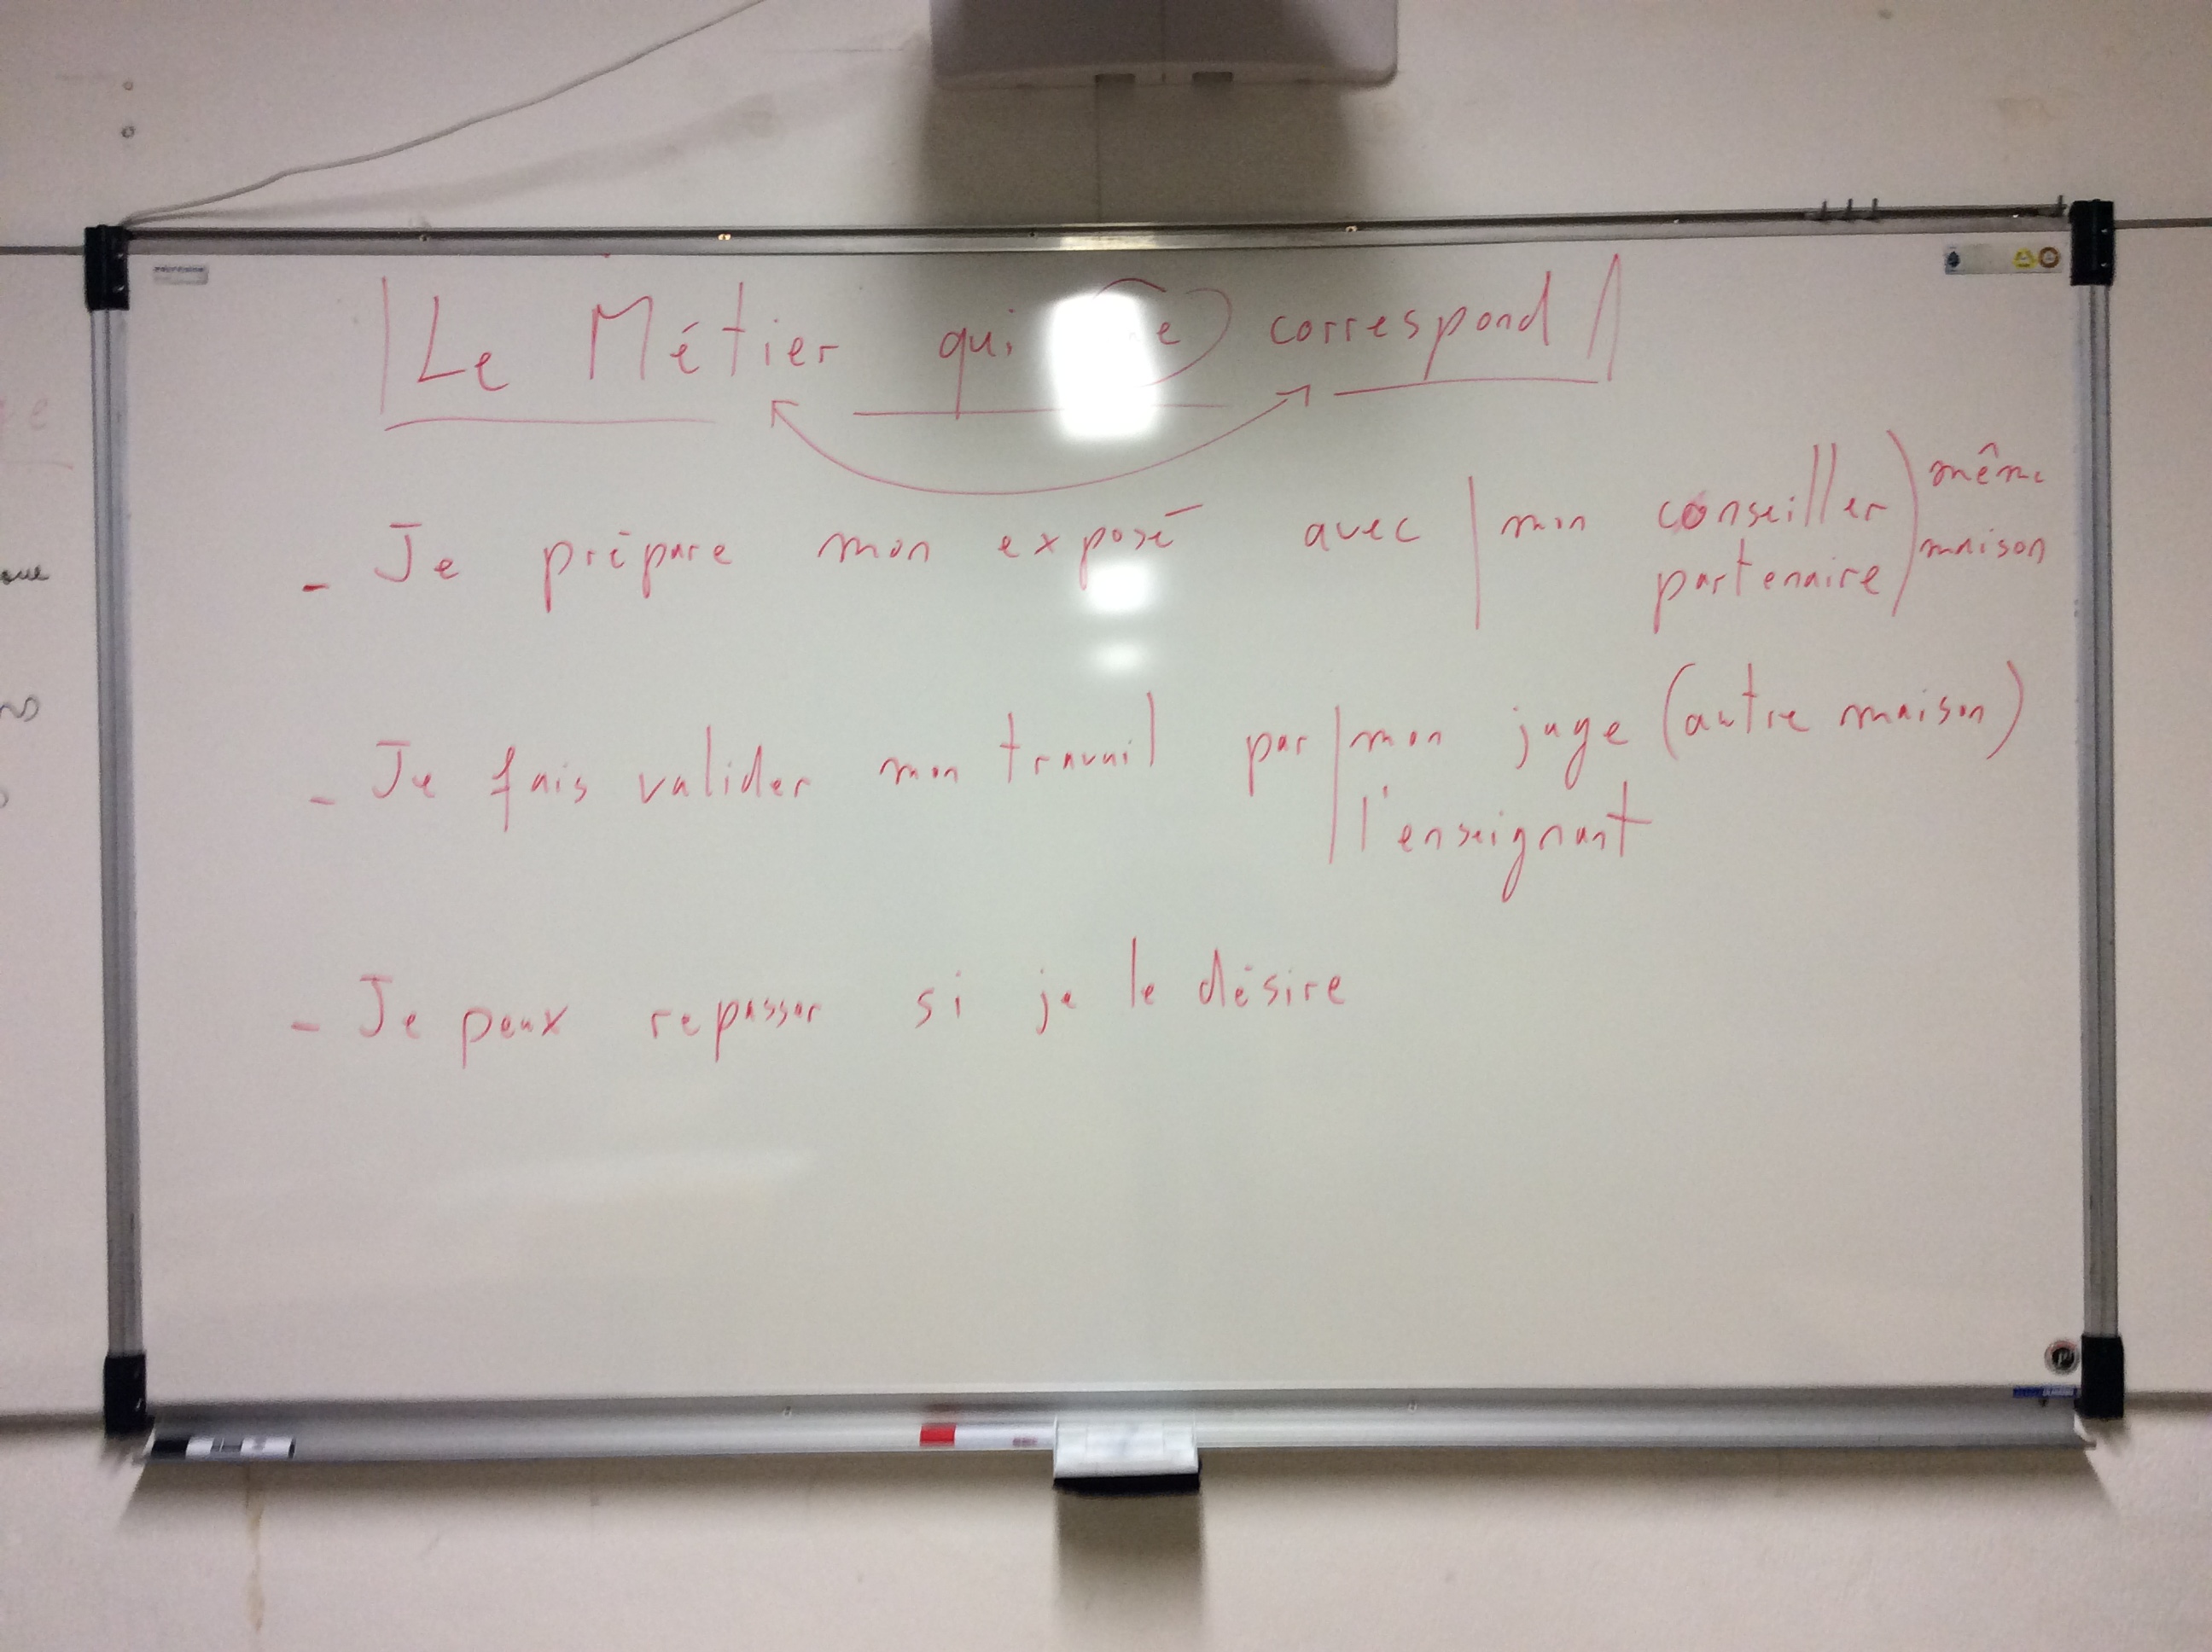 Le Métier qui correspond
- Je prépare mon exposé avec mon conseiller même
partenaire maison
- Je fais valider mon travail par mon juge (autre maison)
l'enseignant
- Je peux repasser si je le désire